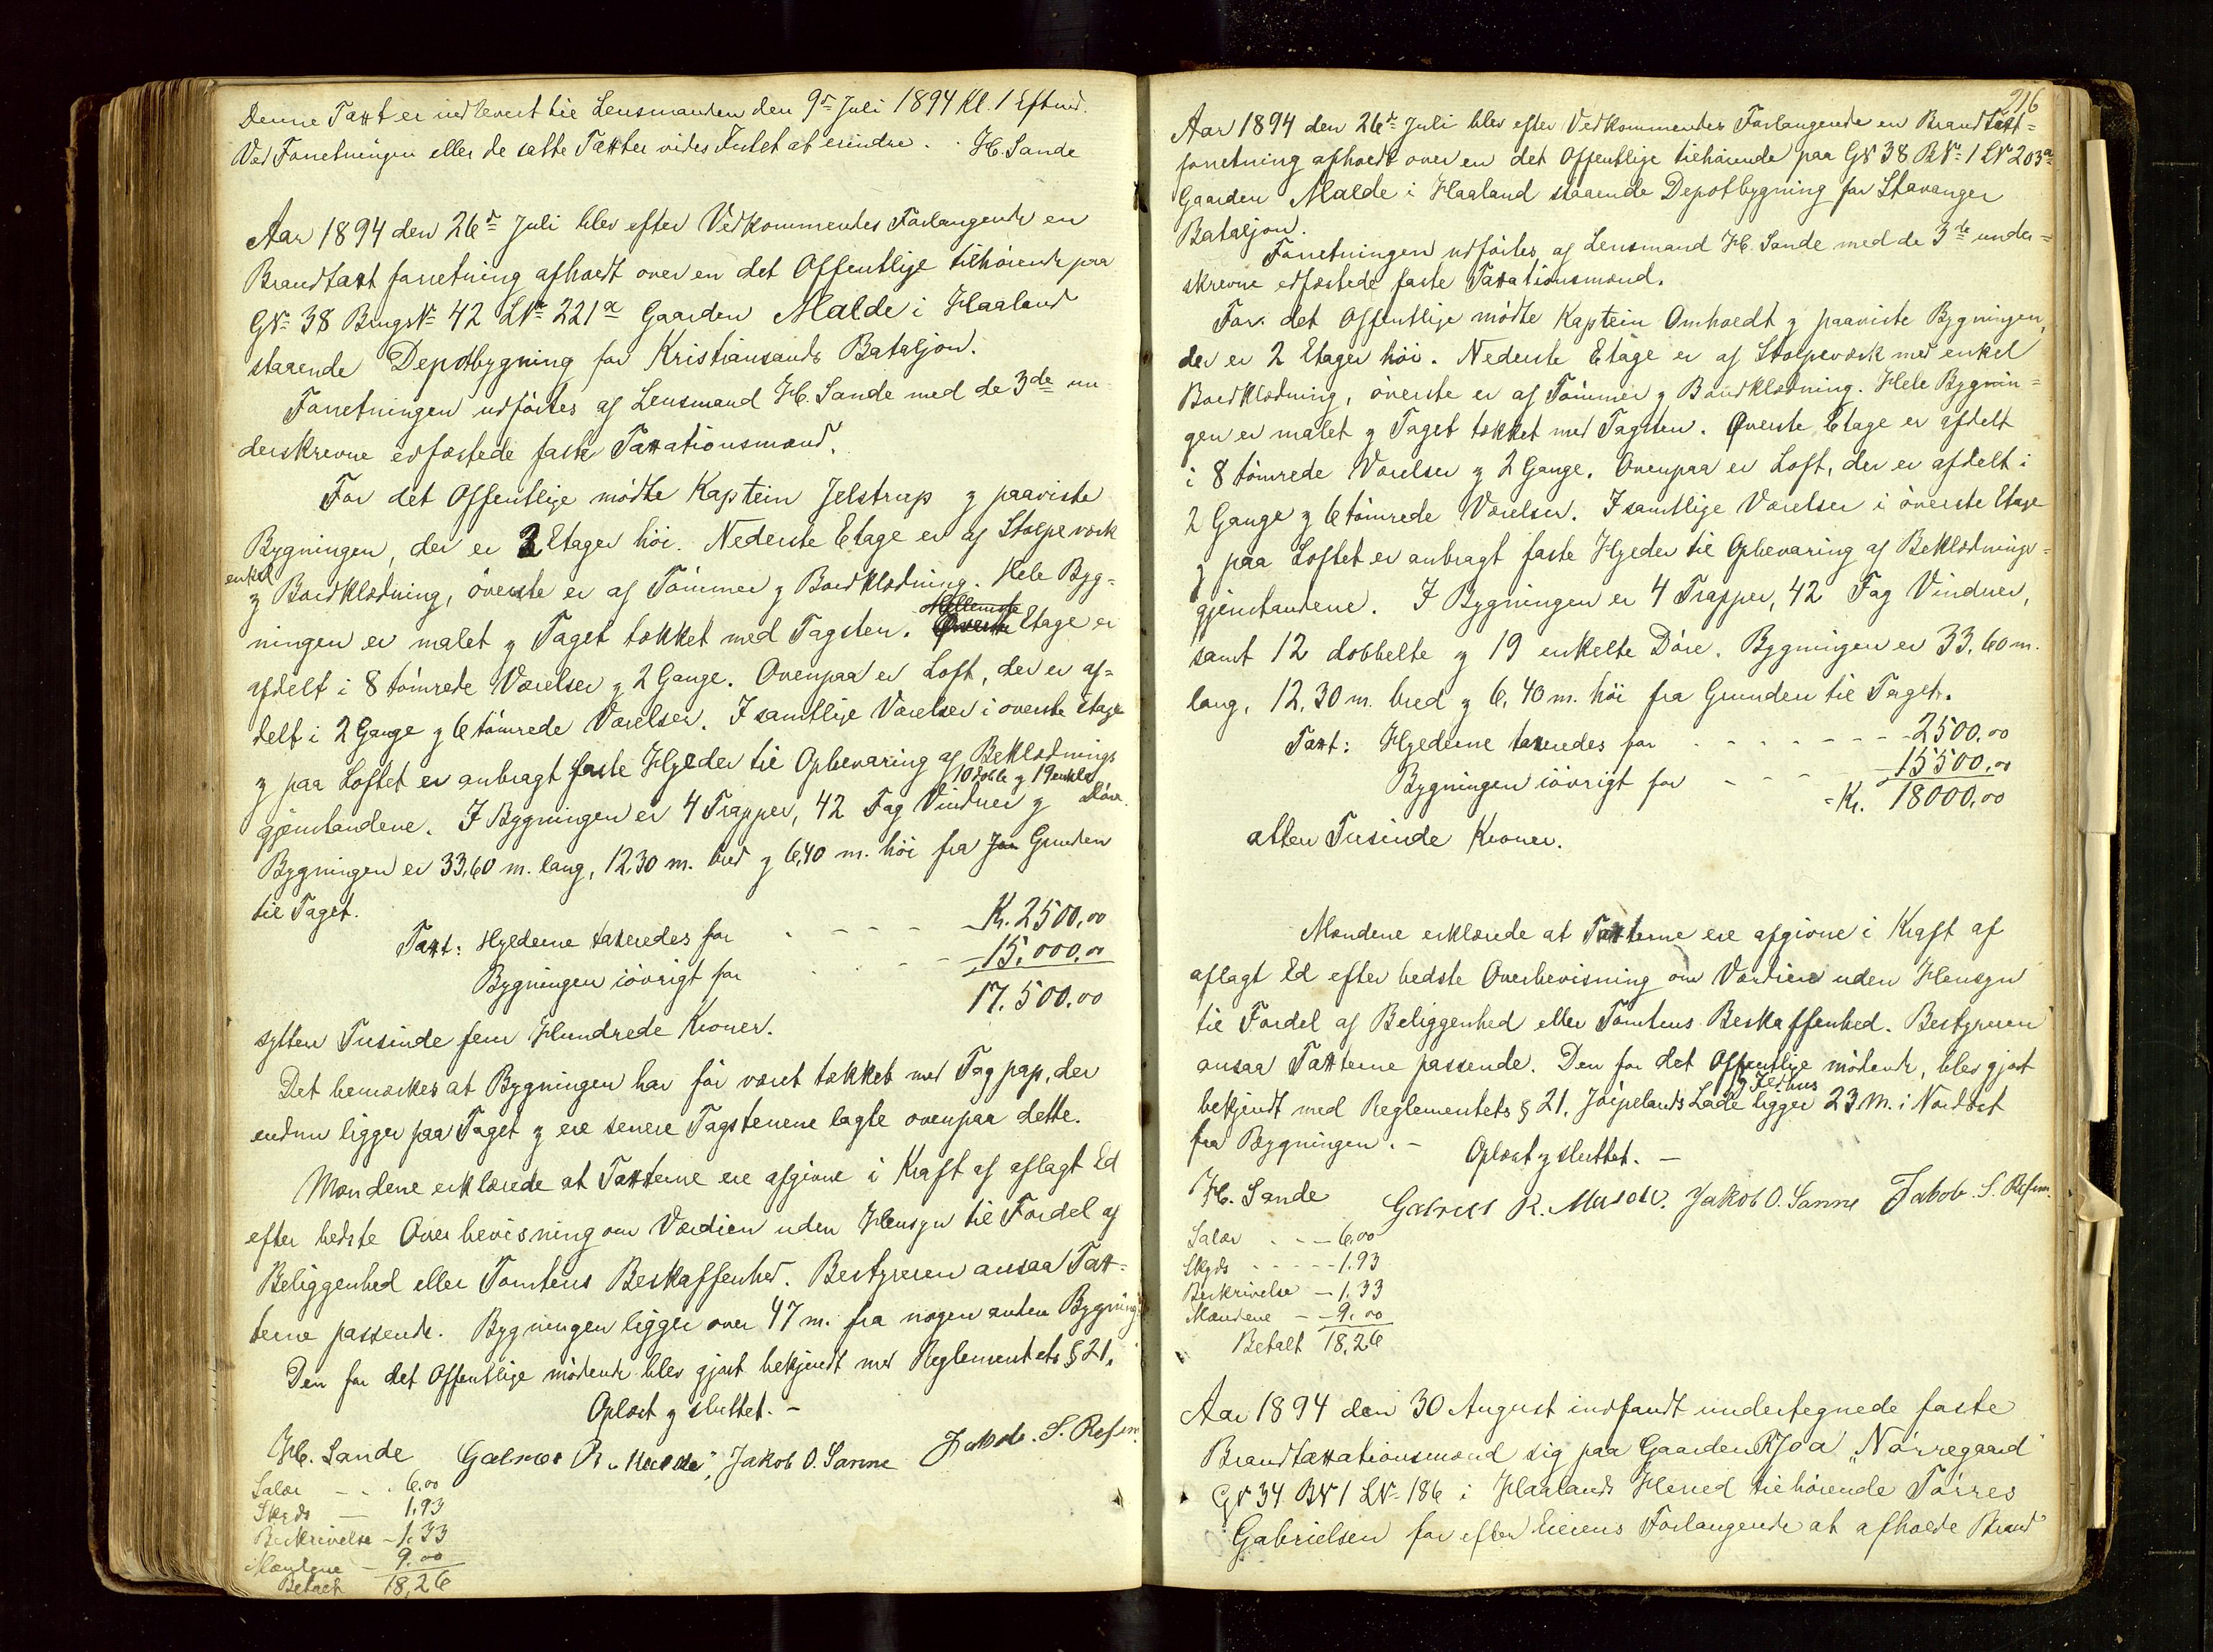 Denne Taxt er indleveret til Lensmanden den 9de Juli 1894 Kl. 1 Eftmd.
Ved Forretningen eller de satte Taxter vides Intet at erindre. H. Sande
Aar 1894 den 26de Juli blev efter Vedkommendes Forlangende en
Brandtaxtforretning afholdt over en det Offentlige tilhörende paa
GNo 38 BrugsNo 42 LNo 221a Gaarden Malde i Haaland
staaende Depotbygning for Kristiansands Bataljon.
Forretningen udförtes af Lensmand H. Sande med de 3de un-
derskrevne edfæstede faste Taxationsmænd.
For det Offentlige mödte Kaptein Jelstrup & paaviste
Bygningen, der er 3 Etager höi. Nederste Etage er af Stolpeværk
enkel
& Bordklædning, överste er af Tömmer & Bordklædning. Hele Byg-
ningen er malet & Taget tækket med Tagsten. Mellemste Etage er
afdelt i 8 tömrede Værelser & 2 Gange. Ovenpaa er Loft, der er af-
delt i 2 Gange & 6 tömrede Værelser. I samtlige Værelser i överste Etage
& paa Loftet er anbragt faste Hylder til Opbevaring af Beklædnings
10 doble & 19 enkle
gjenstandene. I Bygningen er 4 Trapper, 42 Fag Vinduer & Döre.
Bygningen er 33,60 m. lang, 12,30 m. bred & 6,40 m. höi fra Grunden
til Taget.
Taxt: Hylderne taxeredes for - - - - Kr. 2500,00
Bygningen iövrigt for - - - 15.000,00
17.500,00
sytten Tusinde fem Hundrede Kroner.
Det bemærkes at Bygningen har för været tækket med Tagpap, der
endnu ligger paa Taget & ere senere Tagstenene lagte ovenpaa dette.
Mændene erklærede at Taxterne ere afgivne i Kraft af aflagt Ed
efter bedste Overbevisning om Værdien uden Hensyn til Fordel af
Beliggenhed eller Tomtens Beskaffenhed. Bestyreren ansaa Tax-
terne passende. Bygningen ligger over 47 m. fra nogen anden Bygning.
Den for det Offentlige mödende blev gjort bekjendt med Reglementets § 21.
Oplæst & sluttet. -
H. Sande Jakob O. Sanne Jakob. S. Refsn.
Salær - - . 6,00
Skyds - 1,93
Beskrivelse - 1,33
Mændene - 9,00
Betalt 18,26
216
Aar 1894 den 26de Juli blev efter Vedkommendes Forlangende en Brandtaxt-
forretning afholdt over en det Offentlige tilhörende paa GN 38 BNo 1 LN 203a
Gaarden Malde i Haaland staaende Depotbygning for Stavanger
Bataljon.
Forretningen udförtes af Lensmand H. Sande med de 3de under-
skrevne edfæstede faste Taxationsmænd.
For det Offentlige mödte Kaptein Omholdt & paaviste Bygningen,
der er 2 Etager höi. Nederste Etage er af Stolpeværk med enkel
Bordklædning, överste er af Tömmer & Bordklædning. Hele Bygnin-
gen er malet & Taget tækket med Tagsten. Överste Etage er afdelt
i 8 tömrede Værelser & 2 Gange. Ovenpaa er Loft, der er afdelt i
2 Gange & 6 tömrede Værelser. I samtlige Værelser i överste Etage
& paa Loftet er anbragt faste Hylder til Opbevaring af Beklædnings-
gjenstandene. I Bygningen er 4 Trapper, 42 Fag Vinduer,
samt 12 dobbelte & 19 enkelte Döre. Bygningen er 33,60 m.
lang, 12,30 m. bred & 6,40 m. höi fra Grunden til Taget.
Taxt: Hylderne taxeredes for - - - - - - 2500,00
Bygningen iövrigt for - - - - 15500,00
= Kr. 18000,00
atten Tusinde Kroner.
Mændene erklærede at Taxterne ere afgivne i Kraft af
aflagt Ed efter bedste Overbevisning om Værdien uden Hensyn
til Fordel af Beliggenhed eller Tomtens Beskaffenhed. Bestyreren
ansaa Taxterne passende. Den for det Offentlige mödende, blev gjort
& Fedhus
bekjendt med Reglementets § 21. Jörpelands Lade ligger 23 M. i Nordost
fra Bygningen. - Oplæst & sluttet. -
H. Sande Jakob O. Sanne Jakob. S. Refsn.
Salær - - - 6,00
Skyds - - - - 1,93
Beskrivelse - 1,33
Mændene - - 9,00
Betalt 18,26
Aar 1894 den 30 August indfandt undertegnede faste
Brandtaxationsmænd sig paa Gaarden Kjoa "Nörregaard"
GN 34 BN 1 LN- 186 i Haalands Herred tilhörende Törres
Gabrielsen for efter Eierens Forlangende at afholde Brand